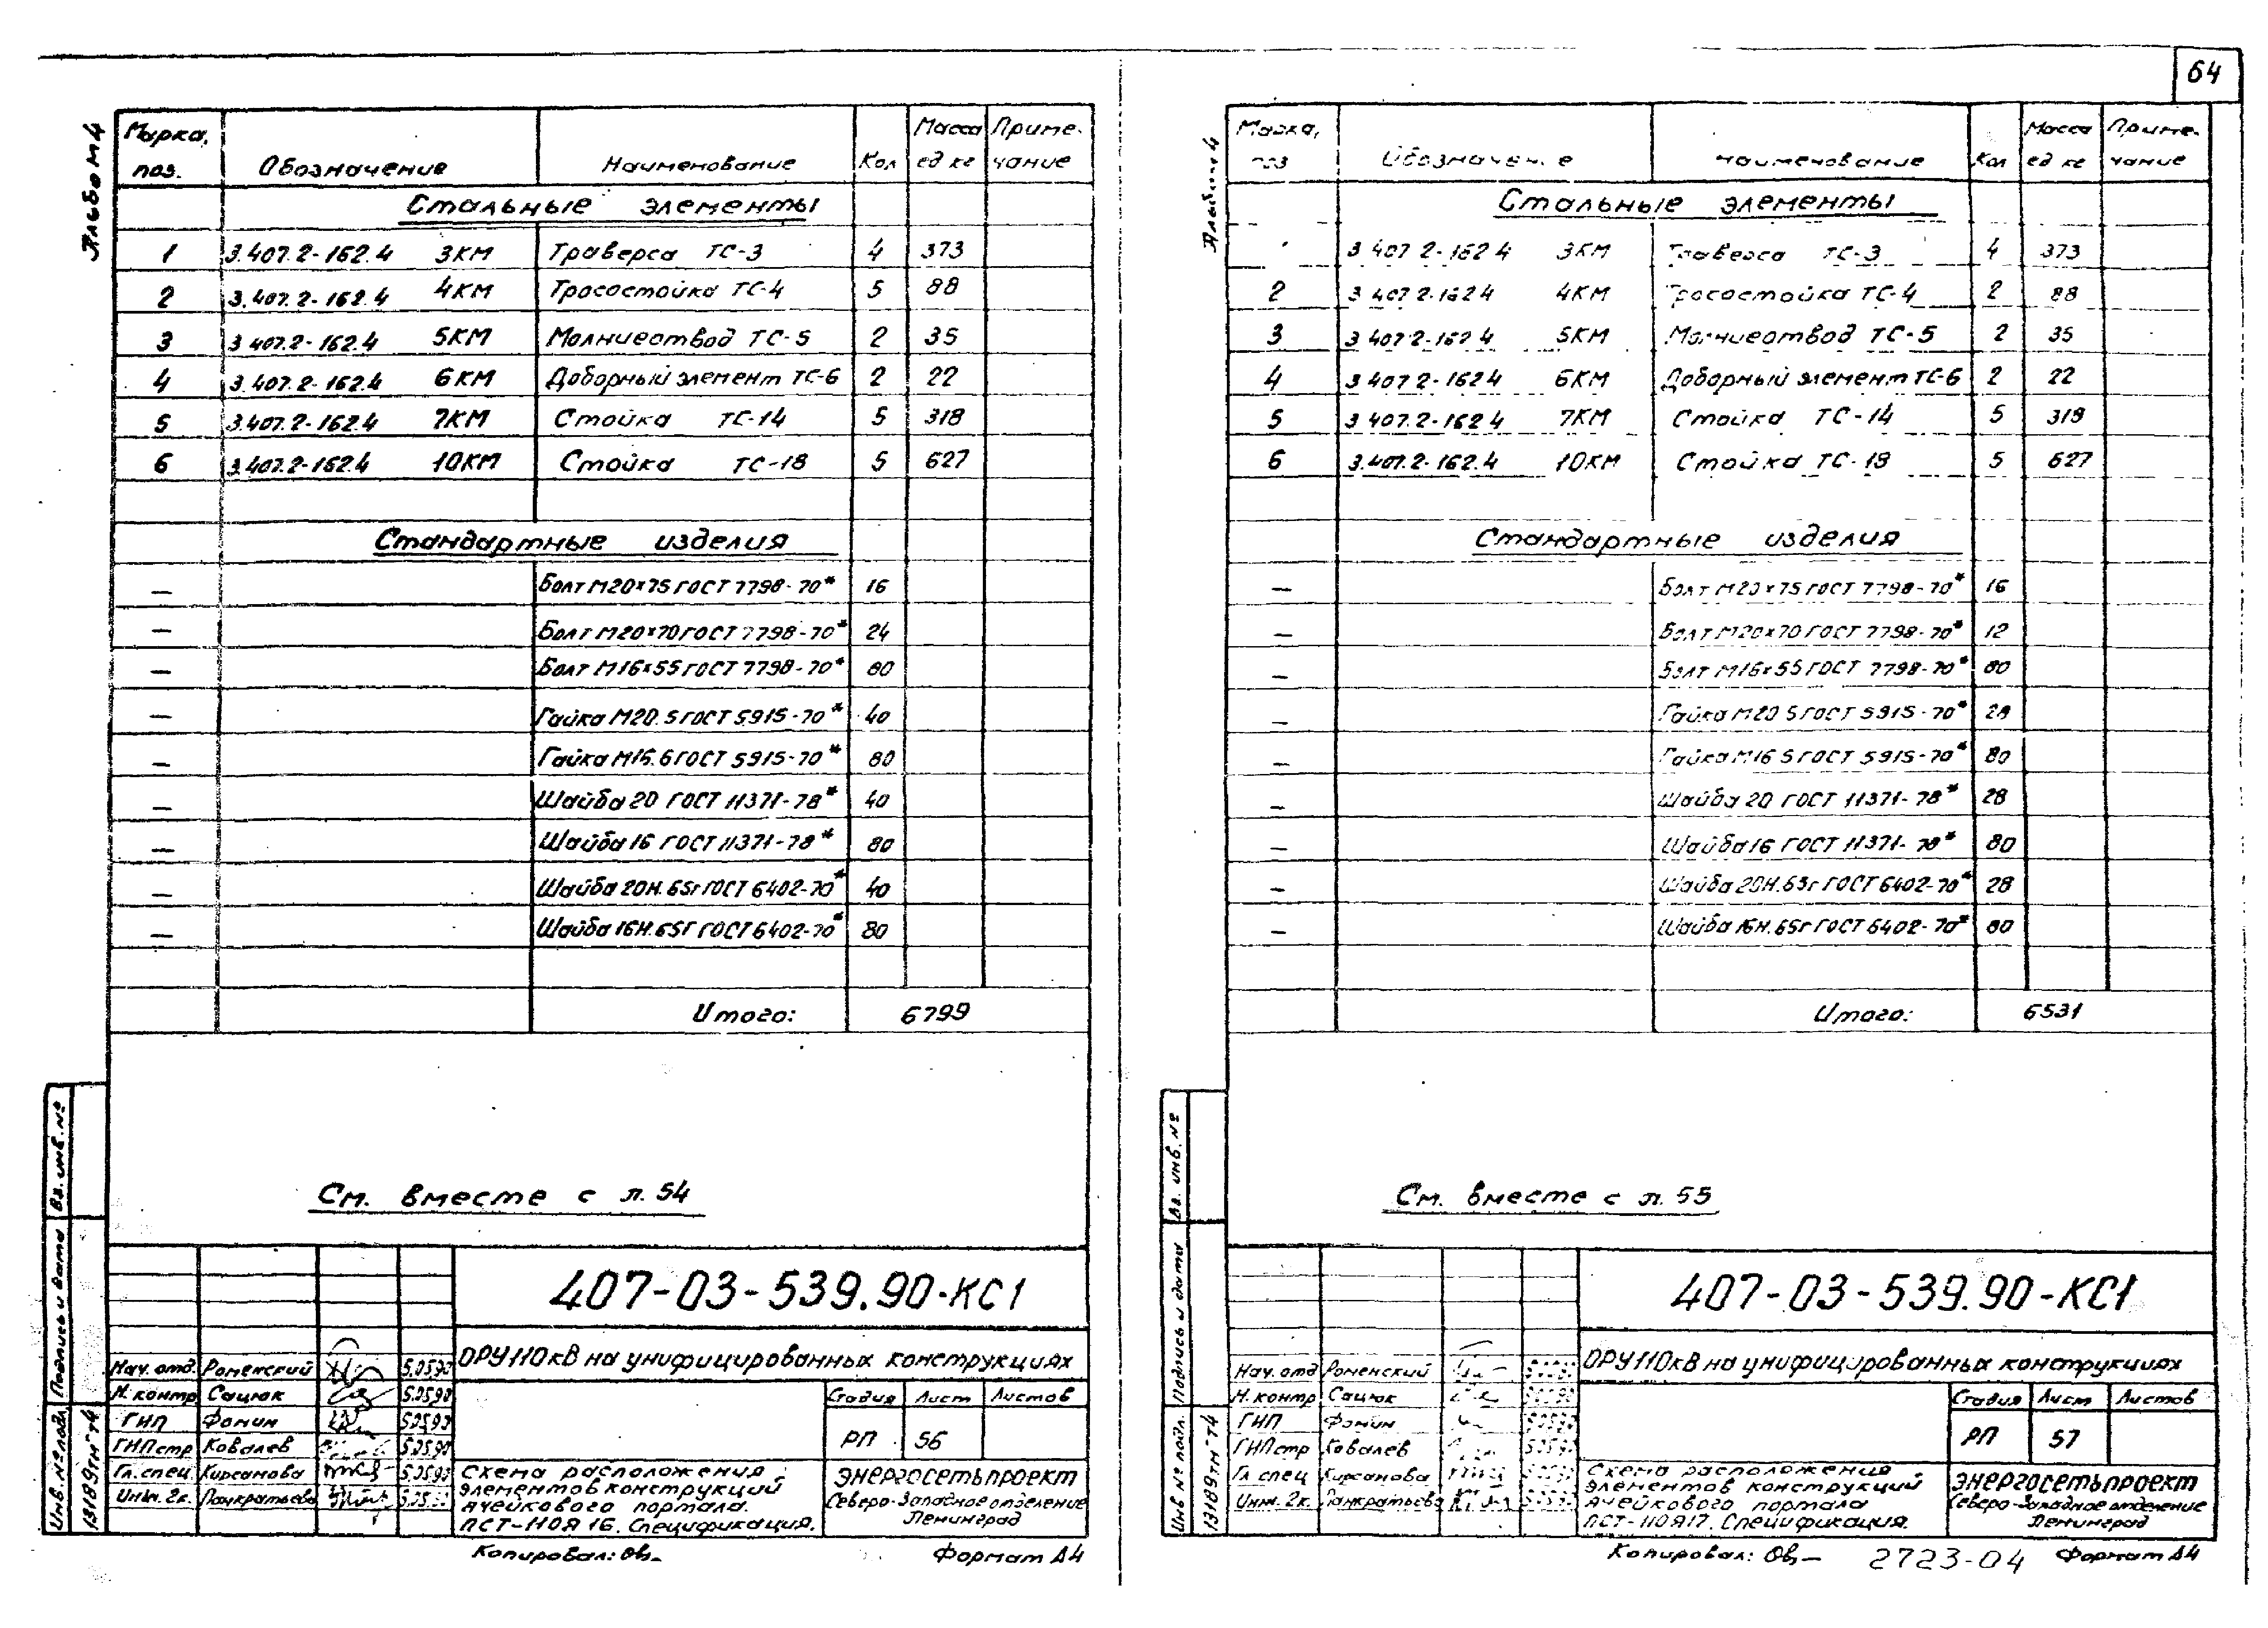 64
Альбом 4
Марка, поз. Обозначение Наименование Кол Масса ед кг Приме-чание
Стальные элементы
1 3.407.2-162.4 3КМ Траверса ТС-3 4 373
2 3.407.2-162.4 4КМ Тросостойка ТС-4 5 88
3 3 407.2-162.4 5КМ Молниеотвод ТС-5 2 35
4 3.407.2-162.4 6КМ Доборный элемент ТС-6 2 22
5 3.407.2-162.4 7КМ Стойка ТС-14 5 318
6 3.407.2-162.4 10КМ Стойка ТС-18 5 627
Стандартные изделия
— Болт М20×75 ГОСТ 7798-70* 16
— Болт М20×70 ГОСТ 7798-70* 24
— Болт М16×55 ГОСТ 7798-70* 80
— Гайка М20.5 ГОСТ 5915-70* 40
— Гайка М16.6 ГОСТ 5915-70* 80
— Шайба 20 ГОСТ 11371-78* 40
— Шайба 16 ГОСТ 11371-78* 80
— Шайба 20Н.65г ГОСТ 6402-70* 40
— Шайба 16Н.65Г ГОСТ 6402-70* 80
Итого: 6799
См. вместе с л. 54
407-03-539.90-КС1
ОРУ 110 кВ на унифицированных конструкциях
Нач. отд. Роменский 5.05.90
Н. контр Сацюк 5.05.90
ГИП Фомин 5.05.90
ГИП стр Ковалев 5.05.90
Гл. спец Кирсанова 5.05.90
Инж. 2к. Панкратьева
Стадия Лист Листов
РП 56
Схема расположения
элементов конструкций
ячейкового портала.
ПСТ-110Я 16. Спецификация.
Энергосетьпроект
Северо-Западное отделение
Ленинград
Инв. № подл. Подпись и дата Вз. инв. №
13189тм-т4
Копировал: Формат А4
Альбом 4
Марка, поз Обозначение Наименование Кол Масса ед кг Приме-чание
Стальные элементы
3 407 2-162 4 3КМ Траверса ТС-3 4 373
2 3 407 2-162 4 4КМ Тросостойка ТС-4 2 88
3 3 407 2-162 4 5КМ Молниеотвод ТС-5 2 35
4 3 407 2-162 4 6КМ Доборный элемент ТС-6 2 22
5 3 407.2-162 4 7КМ Стойка ТС-14 5 318
6 3.407.2-162.4 10КМ Стойка ТС-18 5 627
Стандартные изделия
— Болт М20×75 ГОСТ 7798-70* 16
— Болт М20×70 ГОСТ 7798-70* 12
— Болт М16×55 ГОСТ 7798-70* 80
— Гайка М20 5 ГОСТ 5915-70* 28
— Гайка М16 5 ГОСТ 5915-70* 80
— Шайба 20 ГОСТ 11371-78* 28
— Шайба 16 ГОСТ 11371-78* 80
— Шайба 20Н.65г ГОСТ 6402-70* 28
— Шайба 16Н.65г ГОСТ 6402-70* 80
Итого: 6531
См. вместе с л. 55
407-03-539.90-КС1
ОРУ 110 кВ на унифицированных конструкциях
Нач. отд Роменский
Н. контр Сацюк
ГИП Фомин
ГИП стр Ковалев
Гл. спец Кирсанова
Инж. 2к. Панкратьева
Стадия Лист Листов
РП 57
Схема расположения
элементов конструкций
ячейкового портала
ПСТ-110Я17. Спецификация.
Энергосетьпроект
Северо-Западное отделение
Ленинград
Инв № подл. Подпись и дата Вз. инв. №
13189тм-т4
Копировал: 2723-04 Формат А4